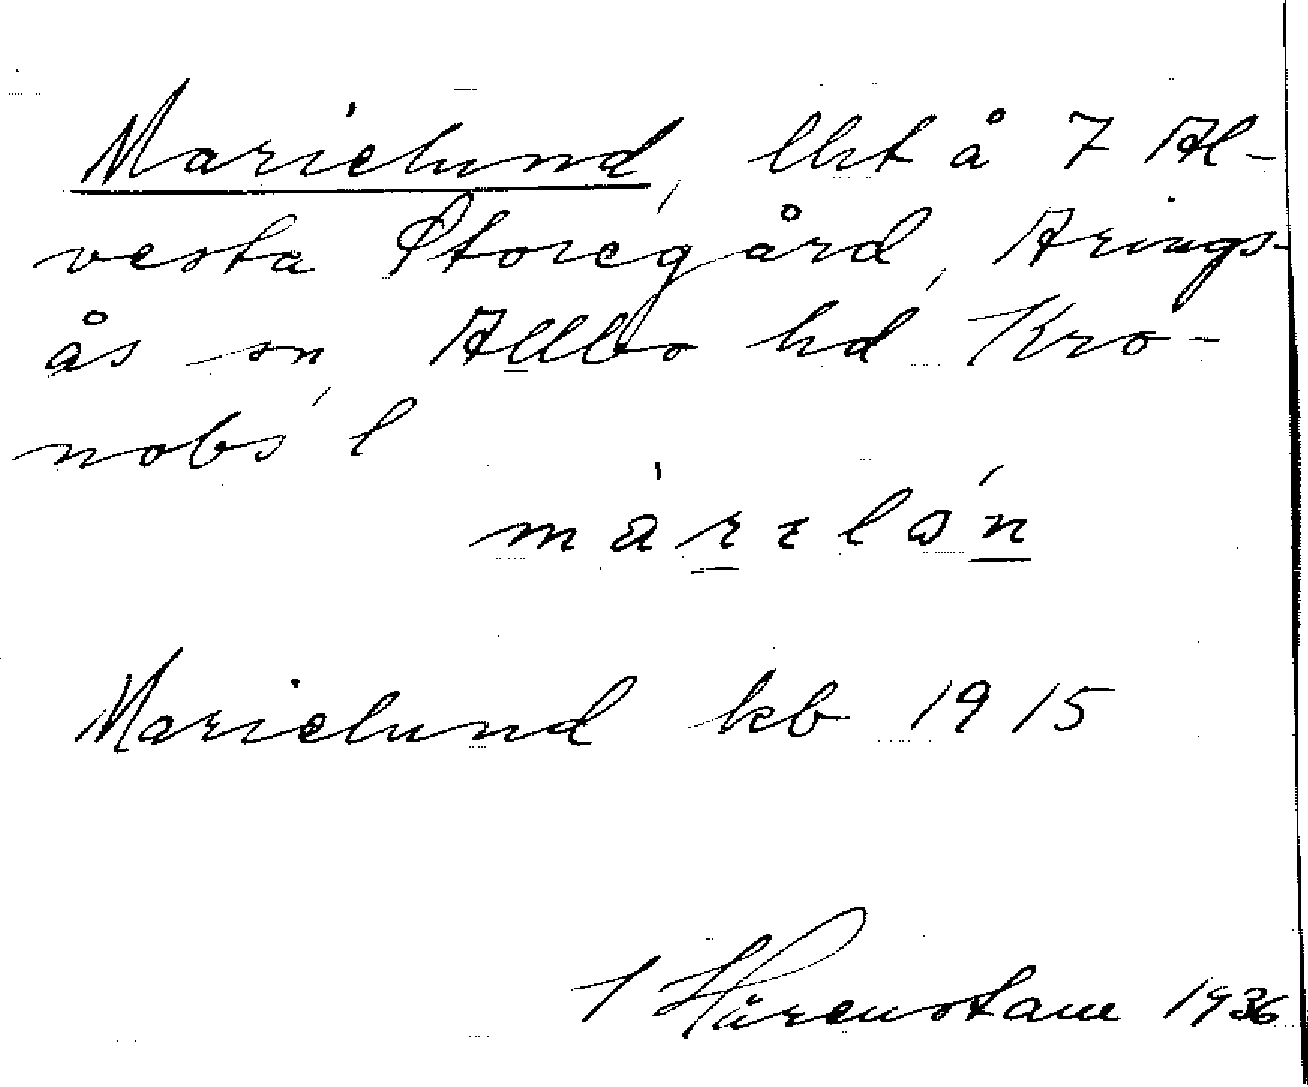 Marielund, lht å 7 Al-
vesta Storegård, Arings-
ås sn, Allbo hd Kro-
nobs l
Marielund kb 1915
1936